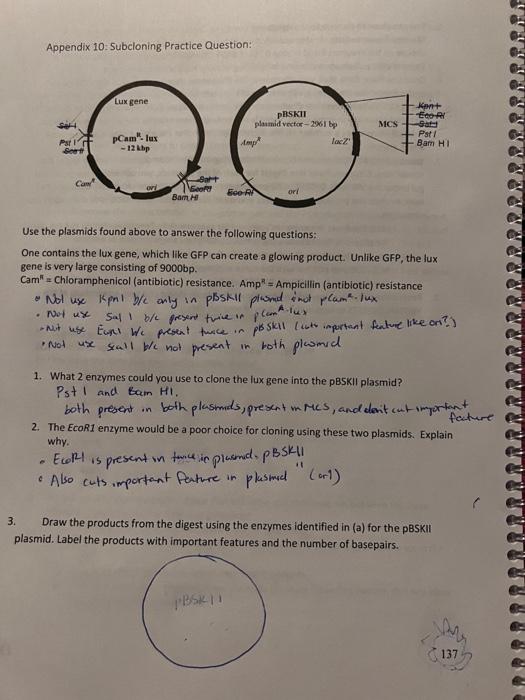 Appendix 10: Subcloning Practice Question:
Lux gene
Sal I
Pst I
pCamR- lux
~ 12 kbp
CamR
ori
Sal I
EcoRI
Bam HI
pBSKII
plasmid vector – 2961 bp
AmpR
lacZ'
Eco RI
ori
MCS
Kpn I
Eco RI
Sal I
Pst I
Bam H I
Use the plasmids found above to answer the following questions:
One contains the lux gene, which like GFP can create a glowing product. Unlike GFP, the lux
gene is very large consisting of 9000bp.
CamR = Chloramphenicol (antibiotic) resistance. AmpR = Ampicillin (antibiotic) resistance
• Not use Kpn1 b/c only in pBSKII plasmid & not pCamR-lux
• Not use Sal 1 b/c present twice in pCamR-lux
• Not use EcoR1 b/c present twice in pBSKII (cuts important feature like ori?)
• Not use ScaII b/c not present in both plasmid
1. What 2 enzymes could you use to clone the lux gene into the pBSKII plasmid?
Pst I and Bam HI.
both present in both plasmids, present in MCS, and don't cut important
feature
2. The EcoR1 enzyme would be a poor choice for cloning using these two plasmids. Explain
why.
• EcoRI is present in twice in plasmid, pBSKII
• Also cuts important feature in plasmid " (ori)
3. Draw the products from the digest using the enzymes identified in (a) for the pBSKII
plasmid. Label the products with important features and the number of basepairs.
pBSKII
137